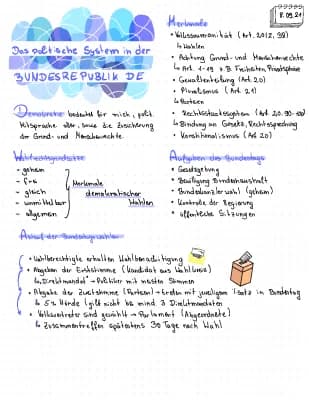 8.09.21
Das politische System in der
BUNDESREPUBLIK DE
Demokratie bedeutet für mich, polit.
Mitsprache aller, sowie die Zusicherung
der Grund- und Menschenrechte.
Wahlrechtsgrundsätze
- geheim
- frei
- gleich
- unmittelbar
- allgemein
Merkmale
demokratischer
Wahlen
Merkmale
• Volkssouveränität (Art. 20II, 38)
↳ Wahlen
• Achtung Grund- und Menschenrechte
↳ Art. 1-19 z.B. Freiheiten, Privatsphäre
• Gewaltenteilung (Art. 20)
• Pluralismus (Art. 21)
↳ Parteien
• Rechtsstaatssystem (Art. 20
↳ Bindung an Gesetz, Rechtssprechung
(Art 20)
Aufgaben des Bundestags
• Gesetzgebung
• Bewilligung Bundeshaushalt
• Bundeskanzlerwahl (geheim)
• Kontrolle der Regierung
• öffentliche Sitzungen
Ablauf der Bundestagswahlen
• Wahlberechtigte erhalten Wahlbenachrichtigung
• Abgabe der Erststimme (Kandidat aus Wahlkreis)
↳ Direktmandat → Politiker mit meisten Stimmen
• Abgabe der Zweitstimme (Parteien) → treten mit jeweiligem Sitz in Bundestag
↳ 5% Hürde (gilt nicht bei mind. 3 Direktmandaten
• Volksvertreter sind gewählt → Parlament (Abgeordnete)
↳ Zusammentreffen spätestens 30 Tage nach Wahl